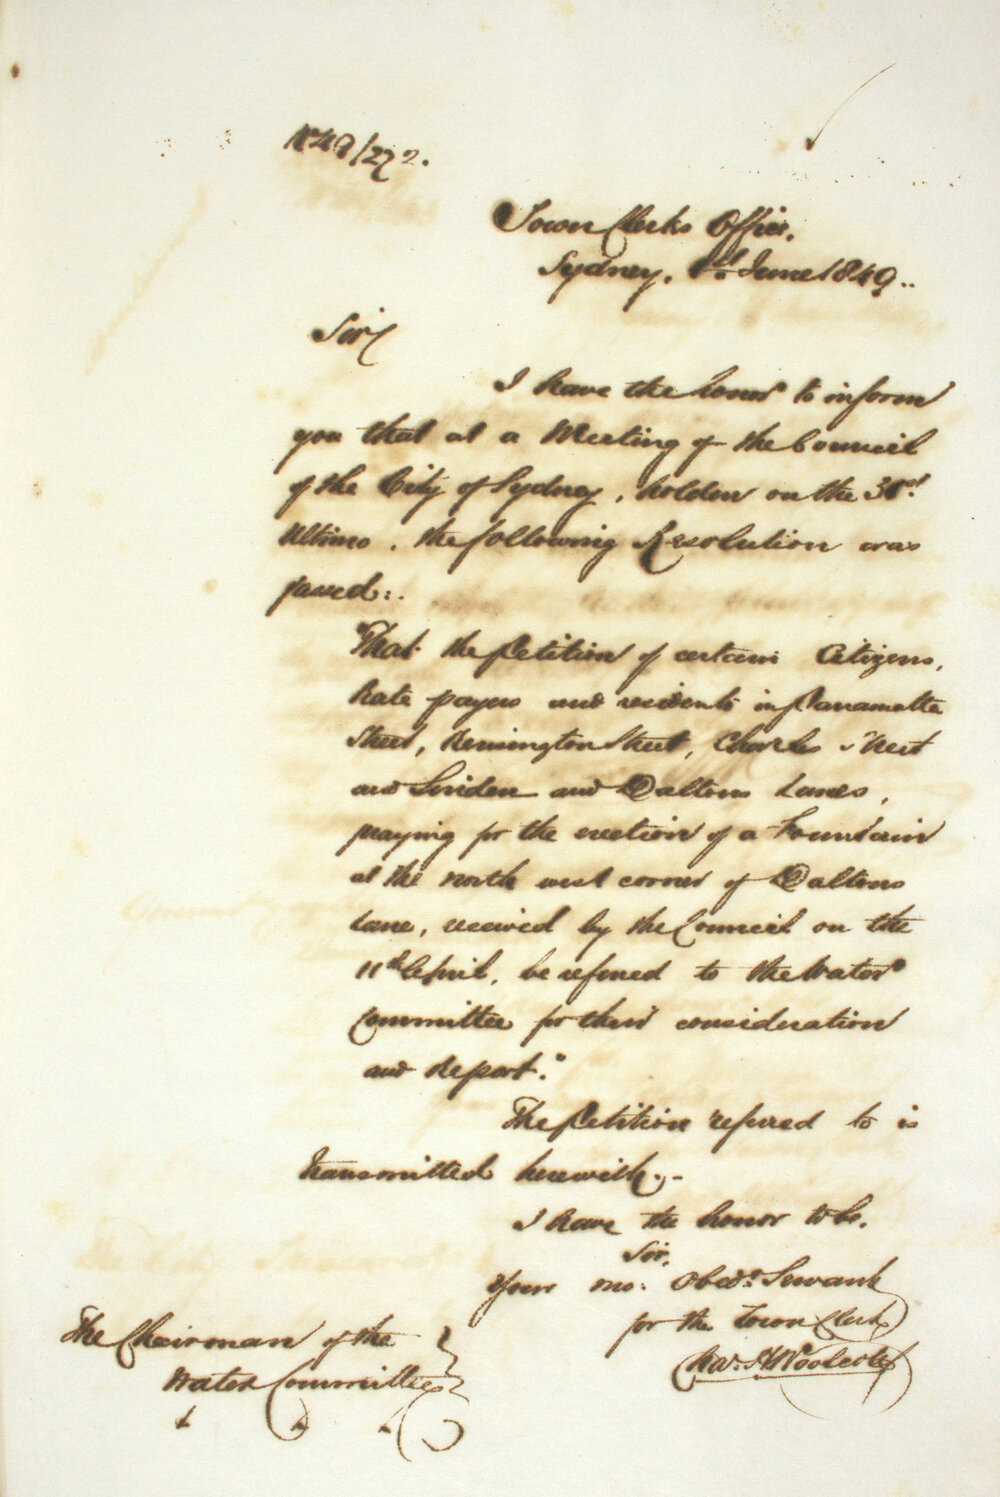 1849/272.
Town Clerks Office,
Sydney, 1st June 1849.
Sir
I have the honor to inform
you that at a Meeting of the Council
of the City of Sydney, holden on the 31st
Ultimo, the following Resolution was
passed:
"That the Petition of certain Citizens,
Rate payers and residents in Parramatta
Street, Kensington Street, Charles Street
and Linden and Daltons Lanes,
praying for the erection of a Fountain
at the north west corner of Daltons
Lane, received by the Council on the
11th April, be referred to the Water
Committee for their consideration
and Report."
The Petition referred to is
transmitted herewith.-
I have the honor to be,
Sir,
Your mo. Obedt. Servant
for the Town Clerk
The Chairman of the
Water Committee
Woolcott